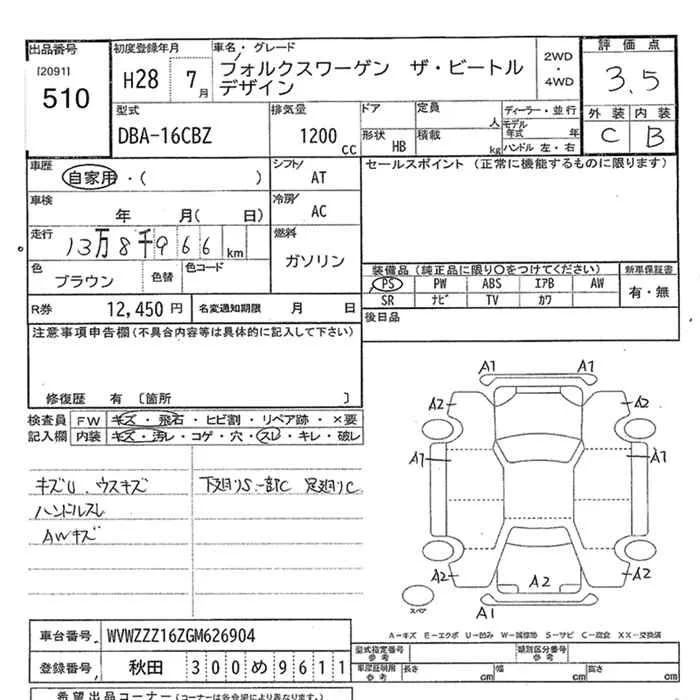 出品番号 初度登録年月 車名・グレード 2WD・4WD 評価点
[2091] 510 H28 7月 フォルクスワーゲン ザ・ビートル デザイン 3.5
型式 排気量 ドア 定員 人 ディーラー・並行 外装 内装
DBA-16CBZ 1200cc 形状 HB 積載 kg モデル年式 年 ハンドル 左・右 C B
車歴 シフト セールスポイント (正常に機能するものに限ります)
自家用・( ) AT
車検 冷房
年 月( 日) AC
走行 燃料
13万8千966km ガソリン
色 色替 色コード 装備品(純正品に限り○をつけてください) 新車保証書
ブラウン PS PW ABS エアB AW 有・無
R券 12,450円 名変通知期限 月 日 SR ナビ TV カワ
後日品
注意事項申告欄(不具合内容等は具体的に記入して下さい)
修復歴 有 〔箇所 〕
検査員 FW キズ・飛石・ヒビ割・リペア跡・×要
記入欄 内装 キズ・汚レ・コゲ・穴・スレ・キレ・破レ
キズU、ウスキズ 下廻りS、一部C 足廻りC
ハンドルスレ
AWキズ
A1 A1
A2 A2
A1 A1
A2 A2 A2
スペア A1
A-キズ E-エクボ U-凹み W-補修跡 S-サビ C-腐食 XX-交換済
車台番号 WVWZZZ16ZGM626904 型式指定番号 参考 類別区分番号 参考
登録番号 秋田 300め9611 車庫証明用 参考 長さ cm 幅 cm 高さ cm
希望出品コーナー(コーナーは各会場により異なります。)